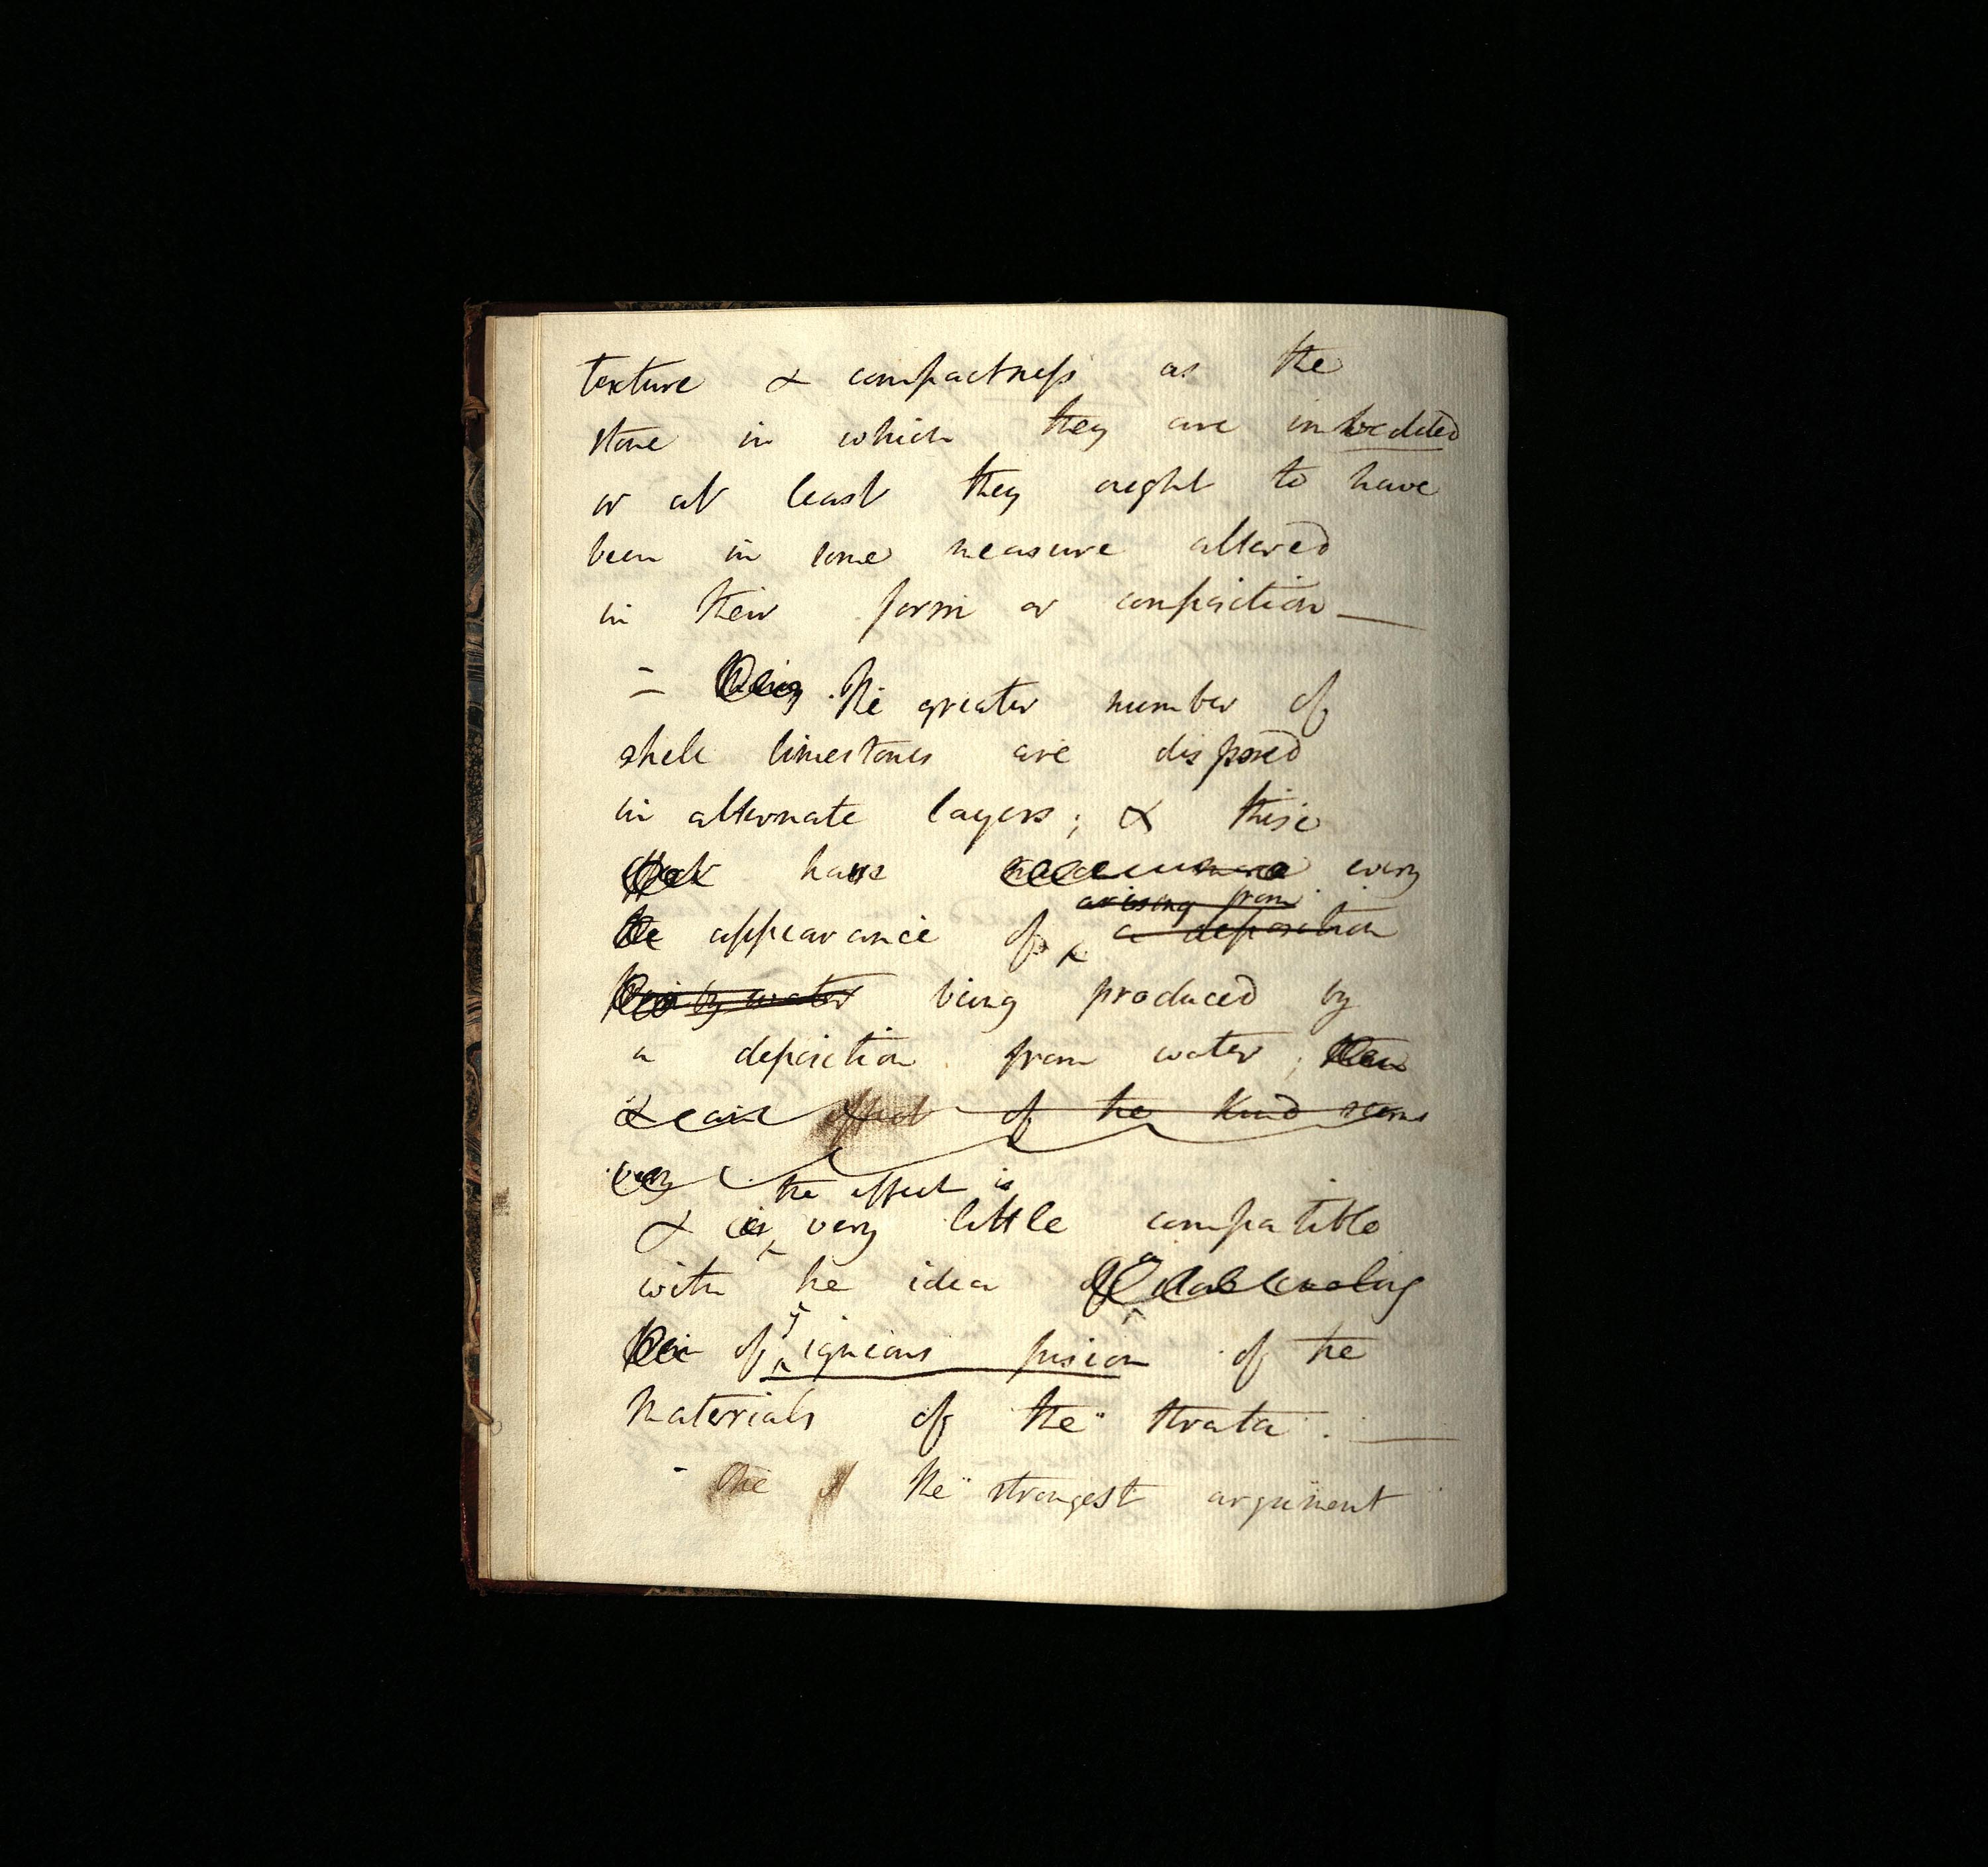 texture & compactness as the
stone in which they are imbedded
or at least they ought to have
been in some measure altered
in their form or composition —
= The greater number of
shell limestones are disposed
in alternate layers; & these
have every
arising from
appearance of a deposition
by water being produced by
a deposition from water;
& effect of the kind seems
very
the effect is
& very little compatible
with the idea
of igneous fusion of the
materials of the strata. —
- the strongest argument